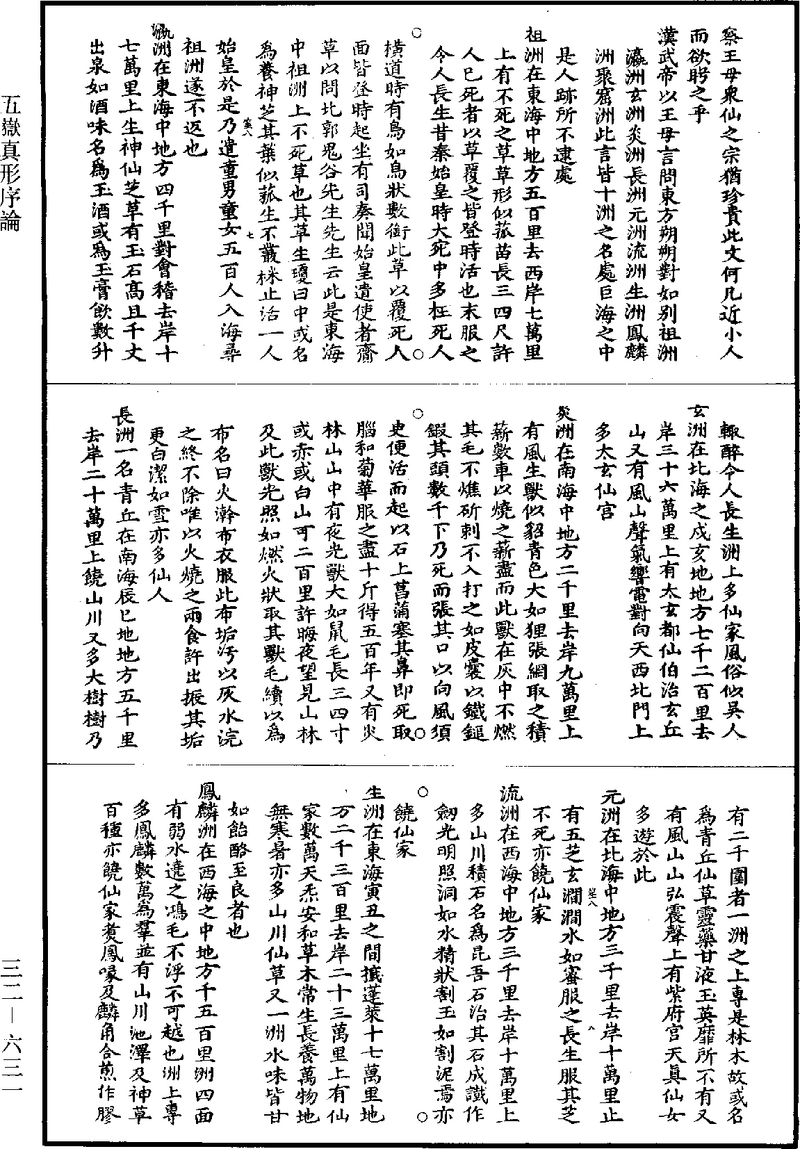 察王母衆仙之宗猶珍貴此文何凡近小人
而欲眄之乎
漢武帝以王母言問東方朔朔對如別祖洲
瀛洲玄洲炎洲長洲元洲流洲生洲鳳麟
洲聚窟洲此言皆十洲之名處巨海之中
是人跡所不逮處
祖洲在東海中地方五百里去西岸七萬里
上有不死之草草形似菰苗長三四尺許
人已死者以草覆之皆登時活也末服之
令人長生昔秦始皇時大死中多枉死人
橫道時有鳥如烏狀數銜此草以覆死人
面皆登時起坐有司奏聞始皇遣使者齎
草以問北郭鬼谷先生先生云此是東海
中祖洲上不死草也其草生瓊田中或名
爲養神芝其葉似菰生不叢株止活一人
始皇於是乃遣童男童女五百人入海尋
祖洲遂不返也
瀛洲在東海中地方四千里對會稽去岸十
七萬里上生神仙芝草有玉石高且千丈
出泉如酒味名爲玉酒或爲玉膏飲數升
輒醉令人長生洲上多仙家風俗似吳人
玄洲在北海之戍亥地地方七千二百里去
岸三十六萬里上有太玄都仙伯治玄丘
山又有風山聲氣響電對向天西北門上
多太玄仙宫
炎洲在南海中地方二千里去岸九萬里上
有風生獸似貂青色大如狸張網取之積
薪數車以燒之薪盡而此獸在灰中不燃
其毛不燋斫刺不入打之如皮囊以鐵鎚
鍜其頭數千下乃死而張其口以向風須
史便活而起以石上菖蒲塞其鼻即死取
腦和菊華服之盡十斤得五百年又有炎
林山山中有夜光獸大如鼠毛長三四寸
或赤或白山可二百里許晦夜望見山林
及此獸光照如燃火狀取其獸毛續以爲
布名曰火澣布衣服此布垢汚以灰水浣
之終不除唯以火燒之兩食許出振其垢
更白潔如雪亦多仙人
長洲一名青丘在南海辰巳地地方五千里
去岸二十萬里上饒山川又多大樹樹乃
有二千圍者一洲之上專是林木故或名
爲青丘仙草靈藥甘液玉英靡所不有又
有風山山弘震聲上有紫府宫天眞仙女
多遊於此
元洲在北海中地方三千里去岸十萬里止
有五芝玄澗澗水如蜜服之長生服其芝
不死亦饒仙家
流洲在西海中地方三千里去岸十萬里上
多山川積石名爲昆吾石治其石成鐵作
劒光明照洞如水精狀割玉如割泥焉亦
饒仙家
生洲在東海寅丑之間攙蓬萊十七萬里地
方二千三百里去岸二十三萬里上有仙
家數萬天炁安和草木常生長養萬物地
無寒暑亦多山川仙草又一洲水味皆甘
如飴酪至良者也
鳳麟洲在西海之中地方千五百里洲四面
有弱水遶之鴻毛不浮不可越也洲上專
多鳳麟數萬為羣並有山川池澤及神草
百種亦饒仙家煑鳳喙及麟角合煎作膠
五嶽真形序論
三二—六三一